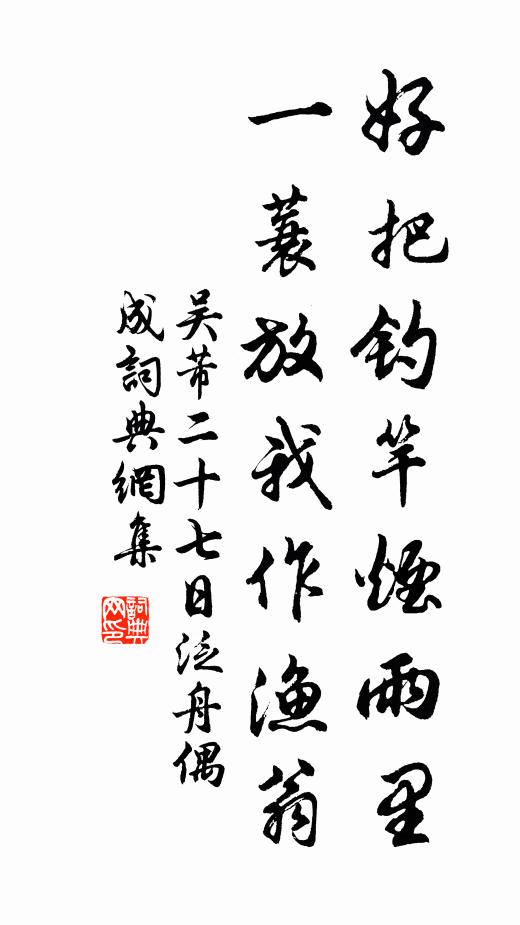 好把钓竿煙雨里
一蓑放我作漁翁
吴芾二十七日泛舟偶
成詞典網集
詞典
网印